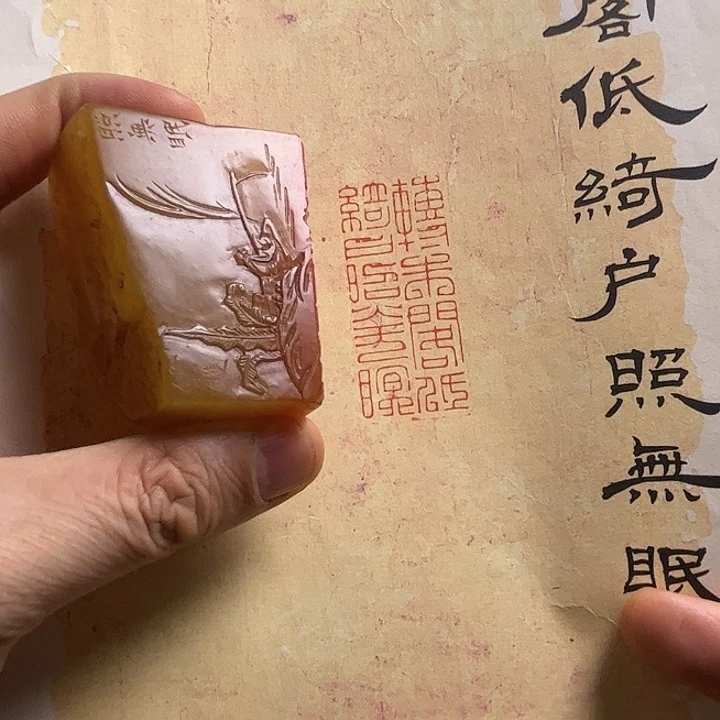 閣低綺户照無眠
轉朱閣低
綺户照無眠